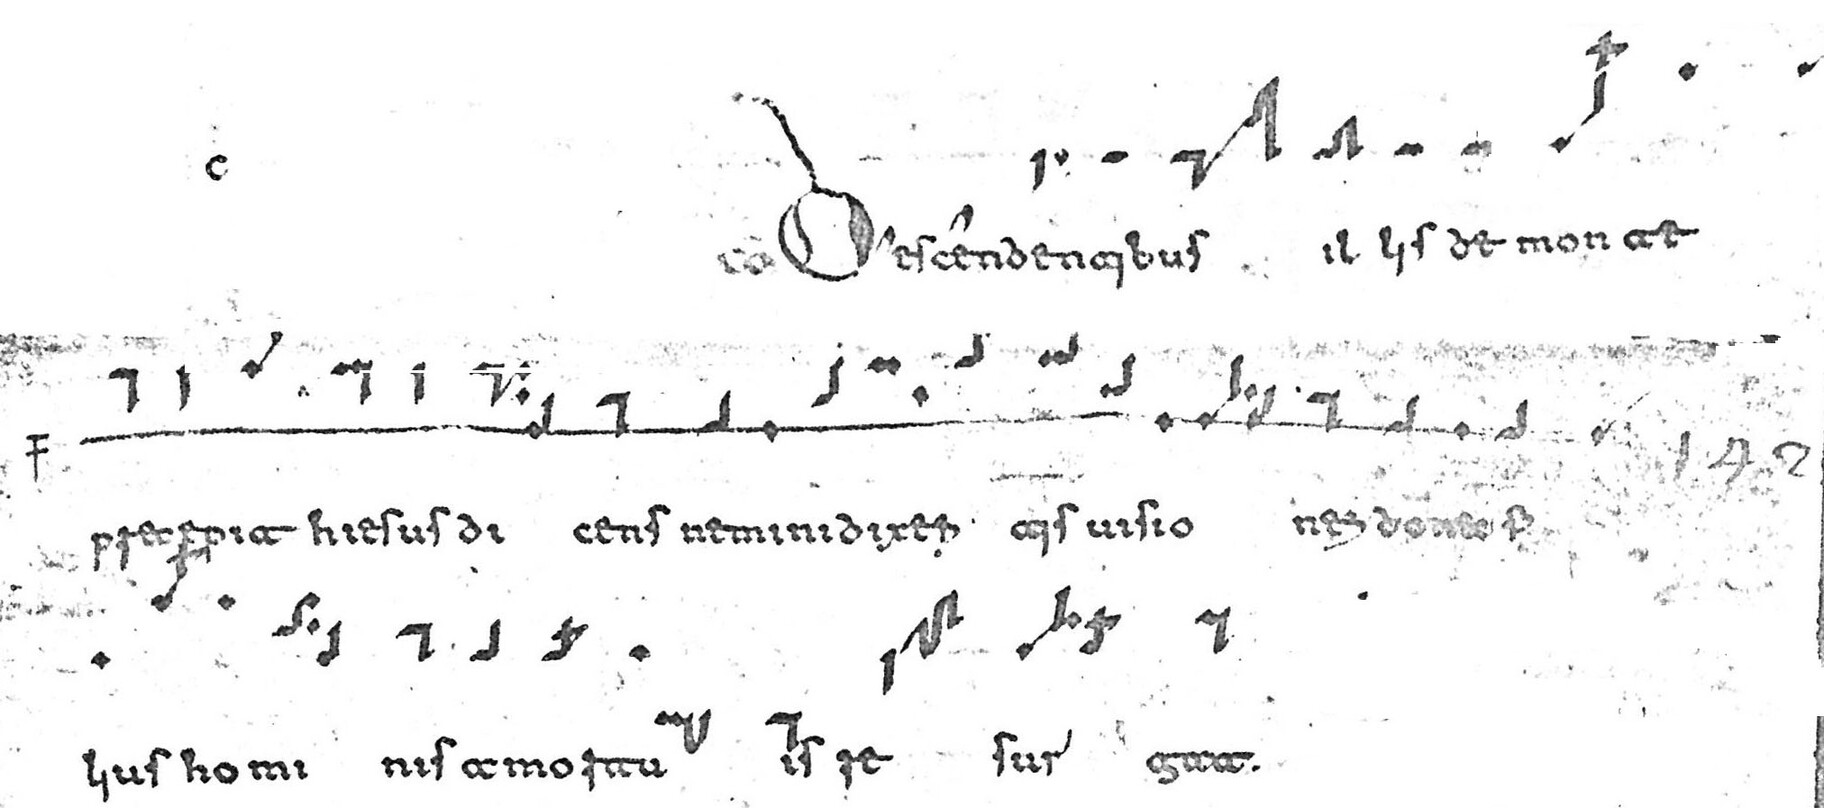 c
co Descendentibus illis de monte
F
precepit hiesus di cens nemini dixeritis visio nem donec fi
lius homi nis a mortu is re sur gat.